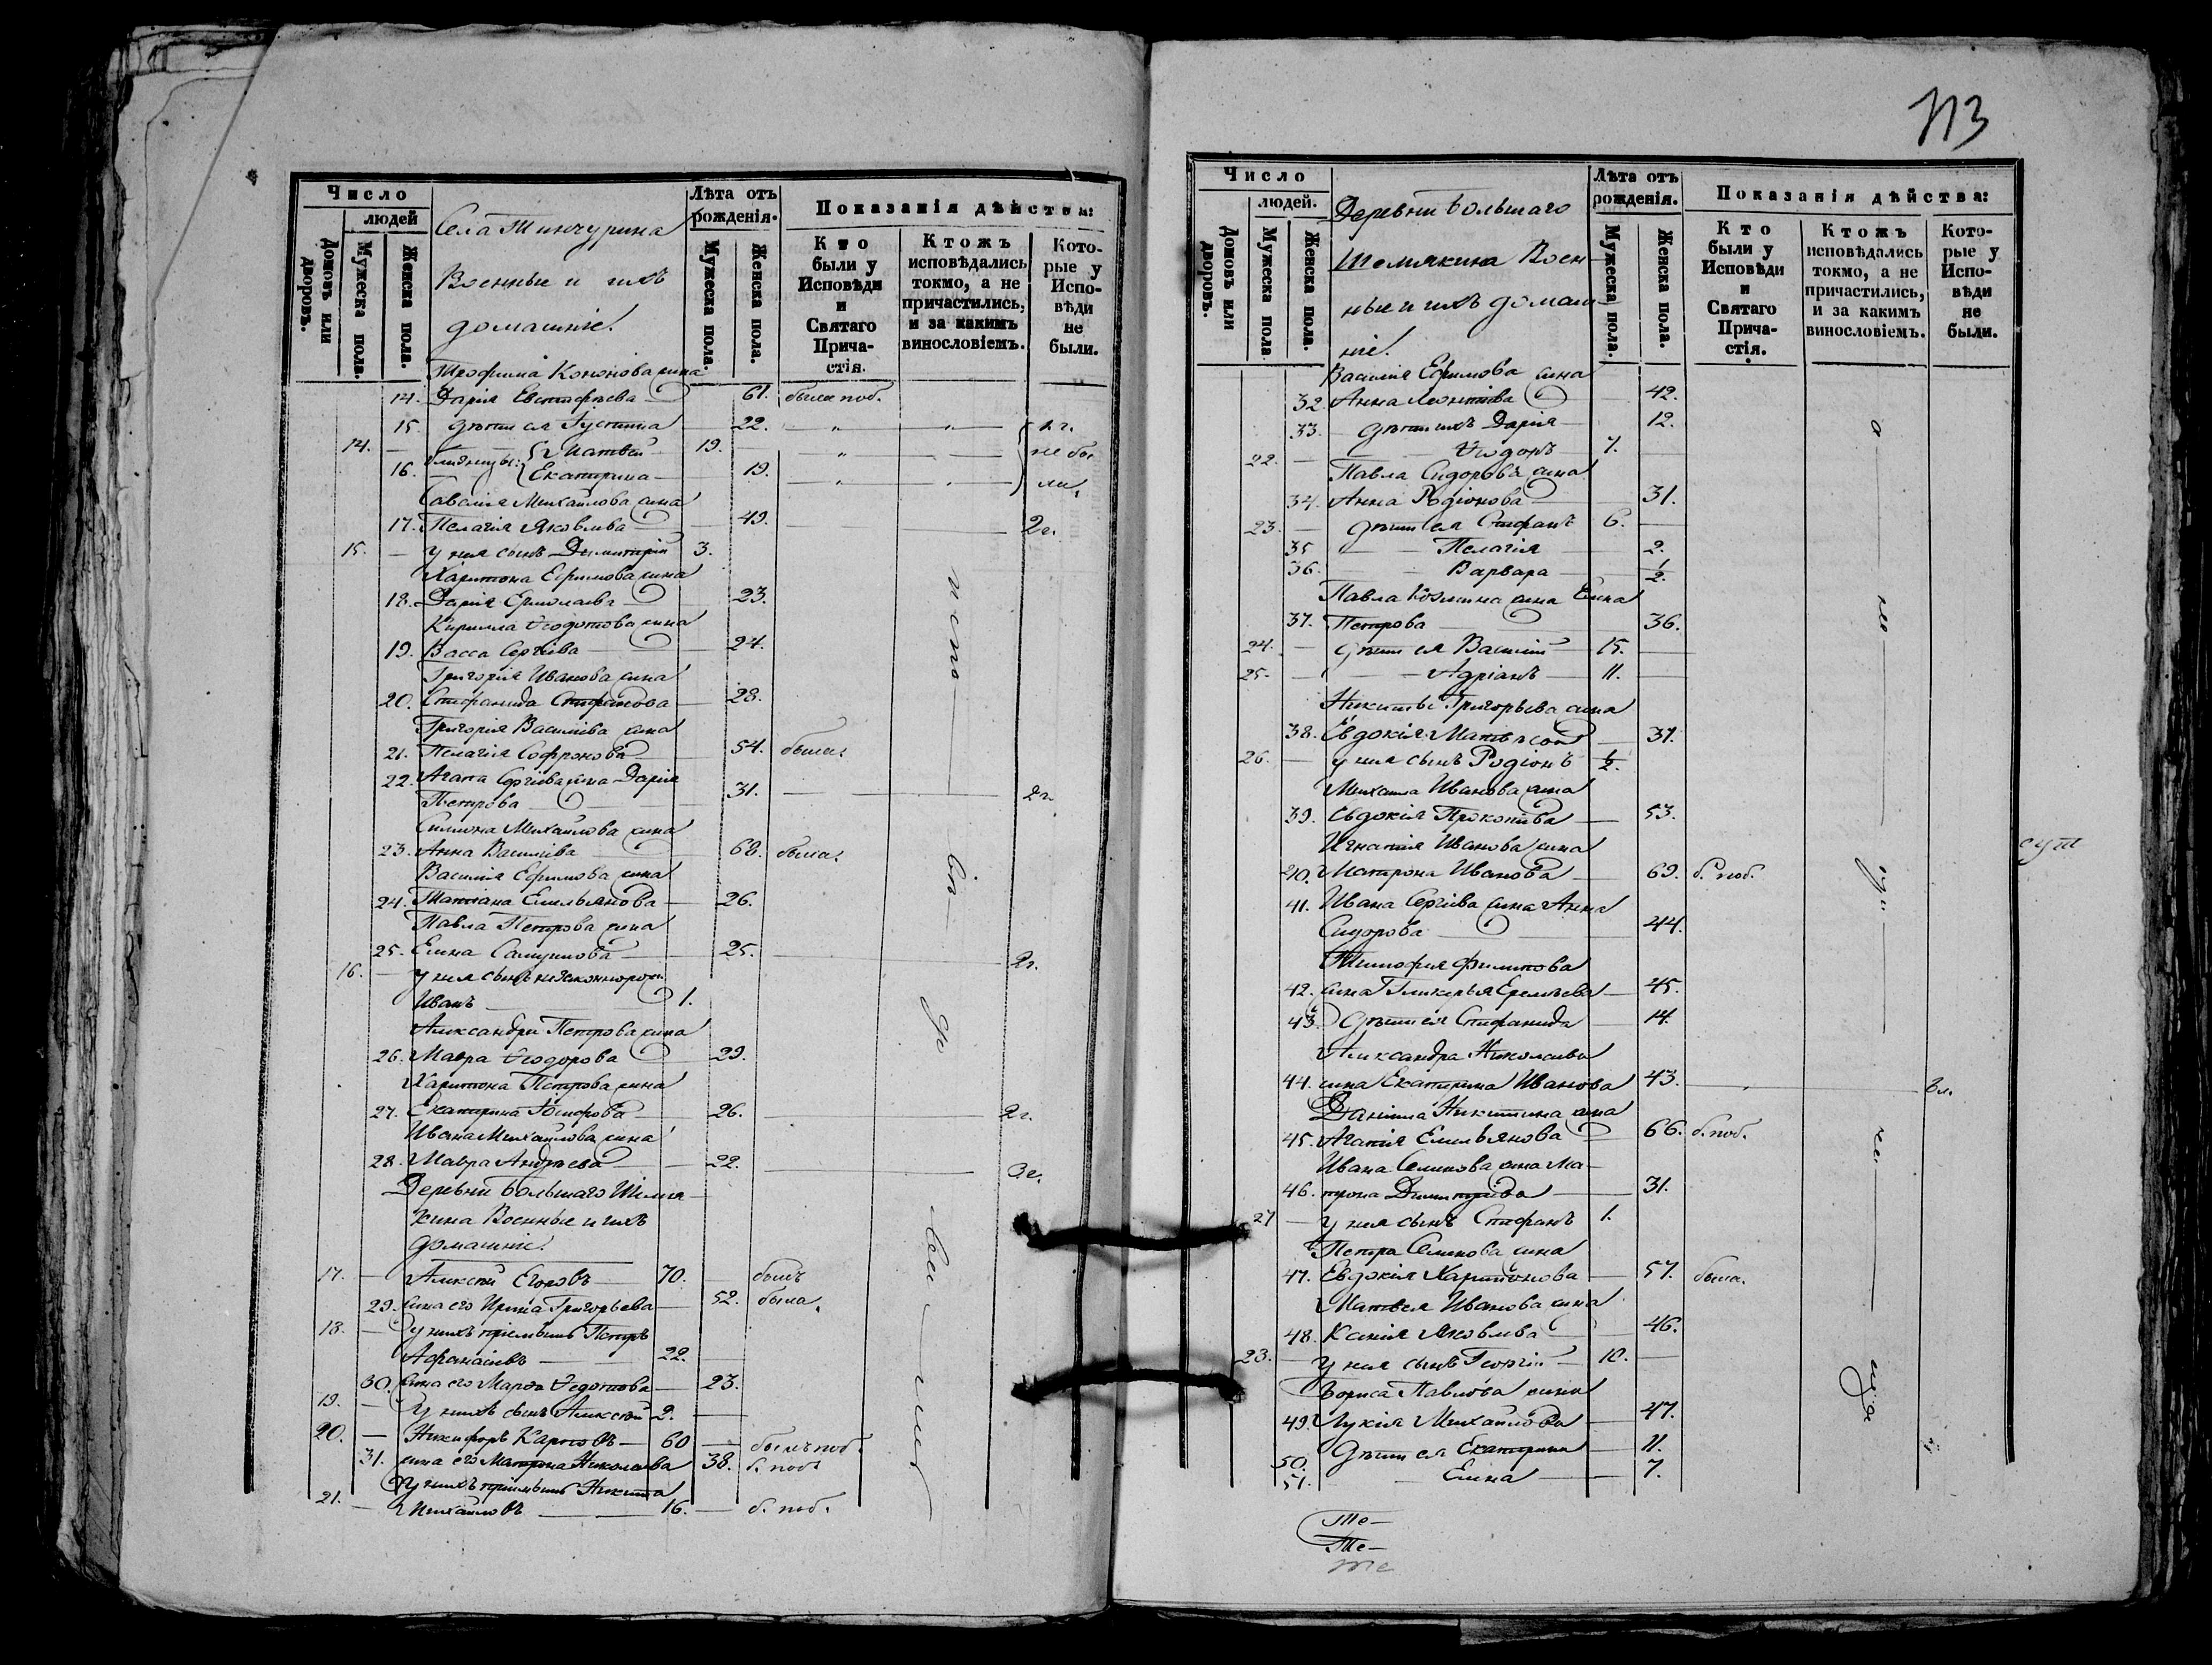 Число
людей
Домовъ или дворовъ.
Мужеска пола.
Женска пола.
Села Тинчурина
Военные и ихъ
домашніе.
Лѣта отъ рожденія.
Мужеска пола.
Женска пола.
Показанія дѣйства:
Кто были у Исповѣди и Святаго Причастія.
Ктожъ исповѣдались токмо, а не причастились, и за какимъ винословіемъ.
Которые у Исповѣди не были.
Трофима Кононова жена
14. Дарія Евстафьева 61. была поб.
15. дѣти ея Іустина 22. 1 г.
14. близнецы: Матвей 19. не бы
16. Екатерина 19. ли.
Савелія Михайлова жена
17. Пелагія Яковлева 49. 2г.
15. у нея сынъ Димитрій 3.
Харитона Ефимова жена
18. Дарія Ермолаева 23.
Кирилла Ѳедотова жена
19. Васса Сергіева 24.
Григорія Иванова жена
20. Стефанида Стефанова 28.
Григорія Васильева жена
21. Пелагія Софронова 54. была.
22. Агапа Сергіева жена Дарія
Петрова 31. 2г.
Симеона Михайлова жена
23. Анна Васильева 68. была.
Василія Ефимова жена
24. Татіана Емельянова 26.
Павла Петрова жена
25. Елена Самуилова 25. 2г.
16. у нея сынъ незаконнорож.
Иванъ 1.
Александра Петрова жена
26. Мавра Ѳеодорова 29.
Харитона Петрова жена
27. Екатерина 26. 2г.
Ивана Михайлова жена
28. Мавра Андреева 22. 3г.
Деревни Большаго Шемя-
кина Военные и ихъ
домашніе.
17. Алексѣй Егоровъ 70. былъ
29. жена его Ирина Григорьева 52. была.
18. у нихъ пріемышъ Петръ
Афанасьевъ 22.
30. жена его Марѳа Ѳедотова 23.
19. у нихъ сынъ Алексѣй 2.
20. Никифоръ Карповъ 60 былъ поб.
31. жена его Матрена Николаева 38. б. поб.
у нихъ пріемышъ Никита
21. Михайловъ 16. б. поб.
113
Число
людей.
Домовъ или дворовъ.
Мужеска пола
Женска пола.
Деревни Большаго
Шемякина Воен-
ные и ихъ домаш-
ніе.
Лѣта отъ рожденія.
Мужеска пола.
Женска пола.
Показанія дѣйства:
Кто были у Исповѣди и Святаго Причастія.
Ктожъ исповѣдались токмо, а не причастились, и за какимъ винословіемъ.
Которые у Исповѣди не были.
Василія Ефимова жена
32. Анна Леонтіева 42.
33. дѣти ихъ Дарія 12.
22. Ѳеодоръ 7.
Павла Сидорова жена
34. Анна Родіонова 31.
23. дѣти ея Стефанъ 6.
35 Пелагія 2.
36. Варвара 1/2.
Павла Козмина жена Елена
37. Петрова 36.
24. дѣти ея Василій 15.
25. Адріанъ 11.
Никиты Григорьева жена
38. Евдокія 37.
26. у нея сынъ Родіонъ 1/2.
Михаила Иванова жена
39. Евдокія Прокопіева 53.
Игнатія Иванова жена
40. Матрона Иванова 69. б. поб.
41. Ивана Сергіева жена Анна
Сидорова 44.
Тимофея Филипова
42. жена Гликерья Еремѣева 45.
43. дѣти ея Стефанида 14.
Александра Николаева
44. жена Екатерина Иванова 43. 6л.
Даніила Никитина жена
45. Агапія Емельянова 66. б. поб.
Ивана Семенова жена Ма-
46. трона Димитріева 31.
27 у нея сынъ Стефанъ 1.
Петра Семенова жена
47. Евдокія Харитонова 57. была.
Матвея Иванова жена
48. Ксенія Яковлева 46.
28. у нея сынъ Георгій 10.
Бориса Павлова жена
49. Лукія Михайлова 47.
50. дѣти ея Екатерина 11.
51. Елена 7.
Те-
Те-
те